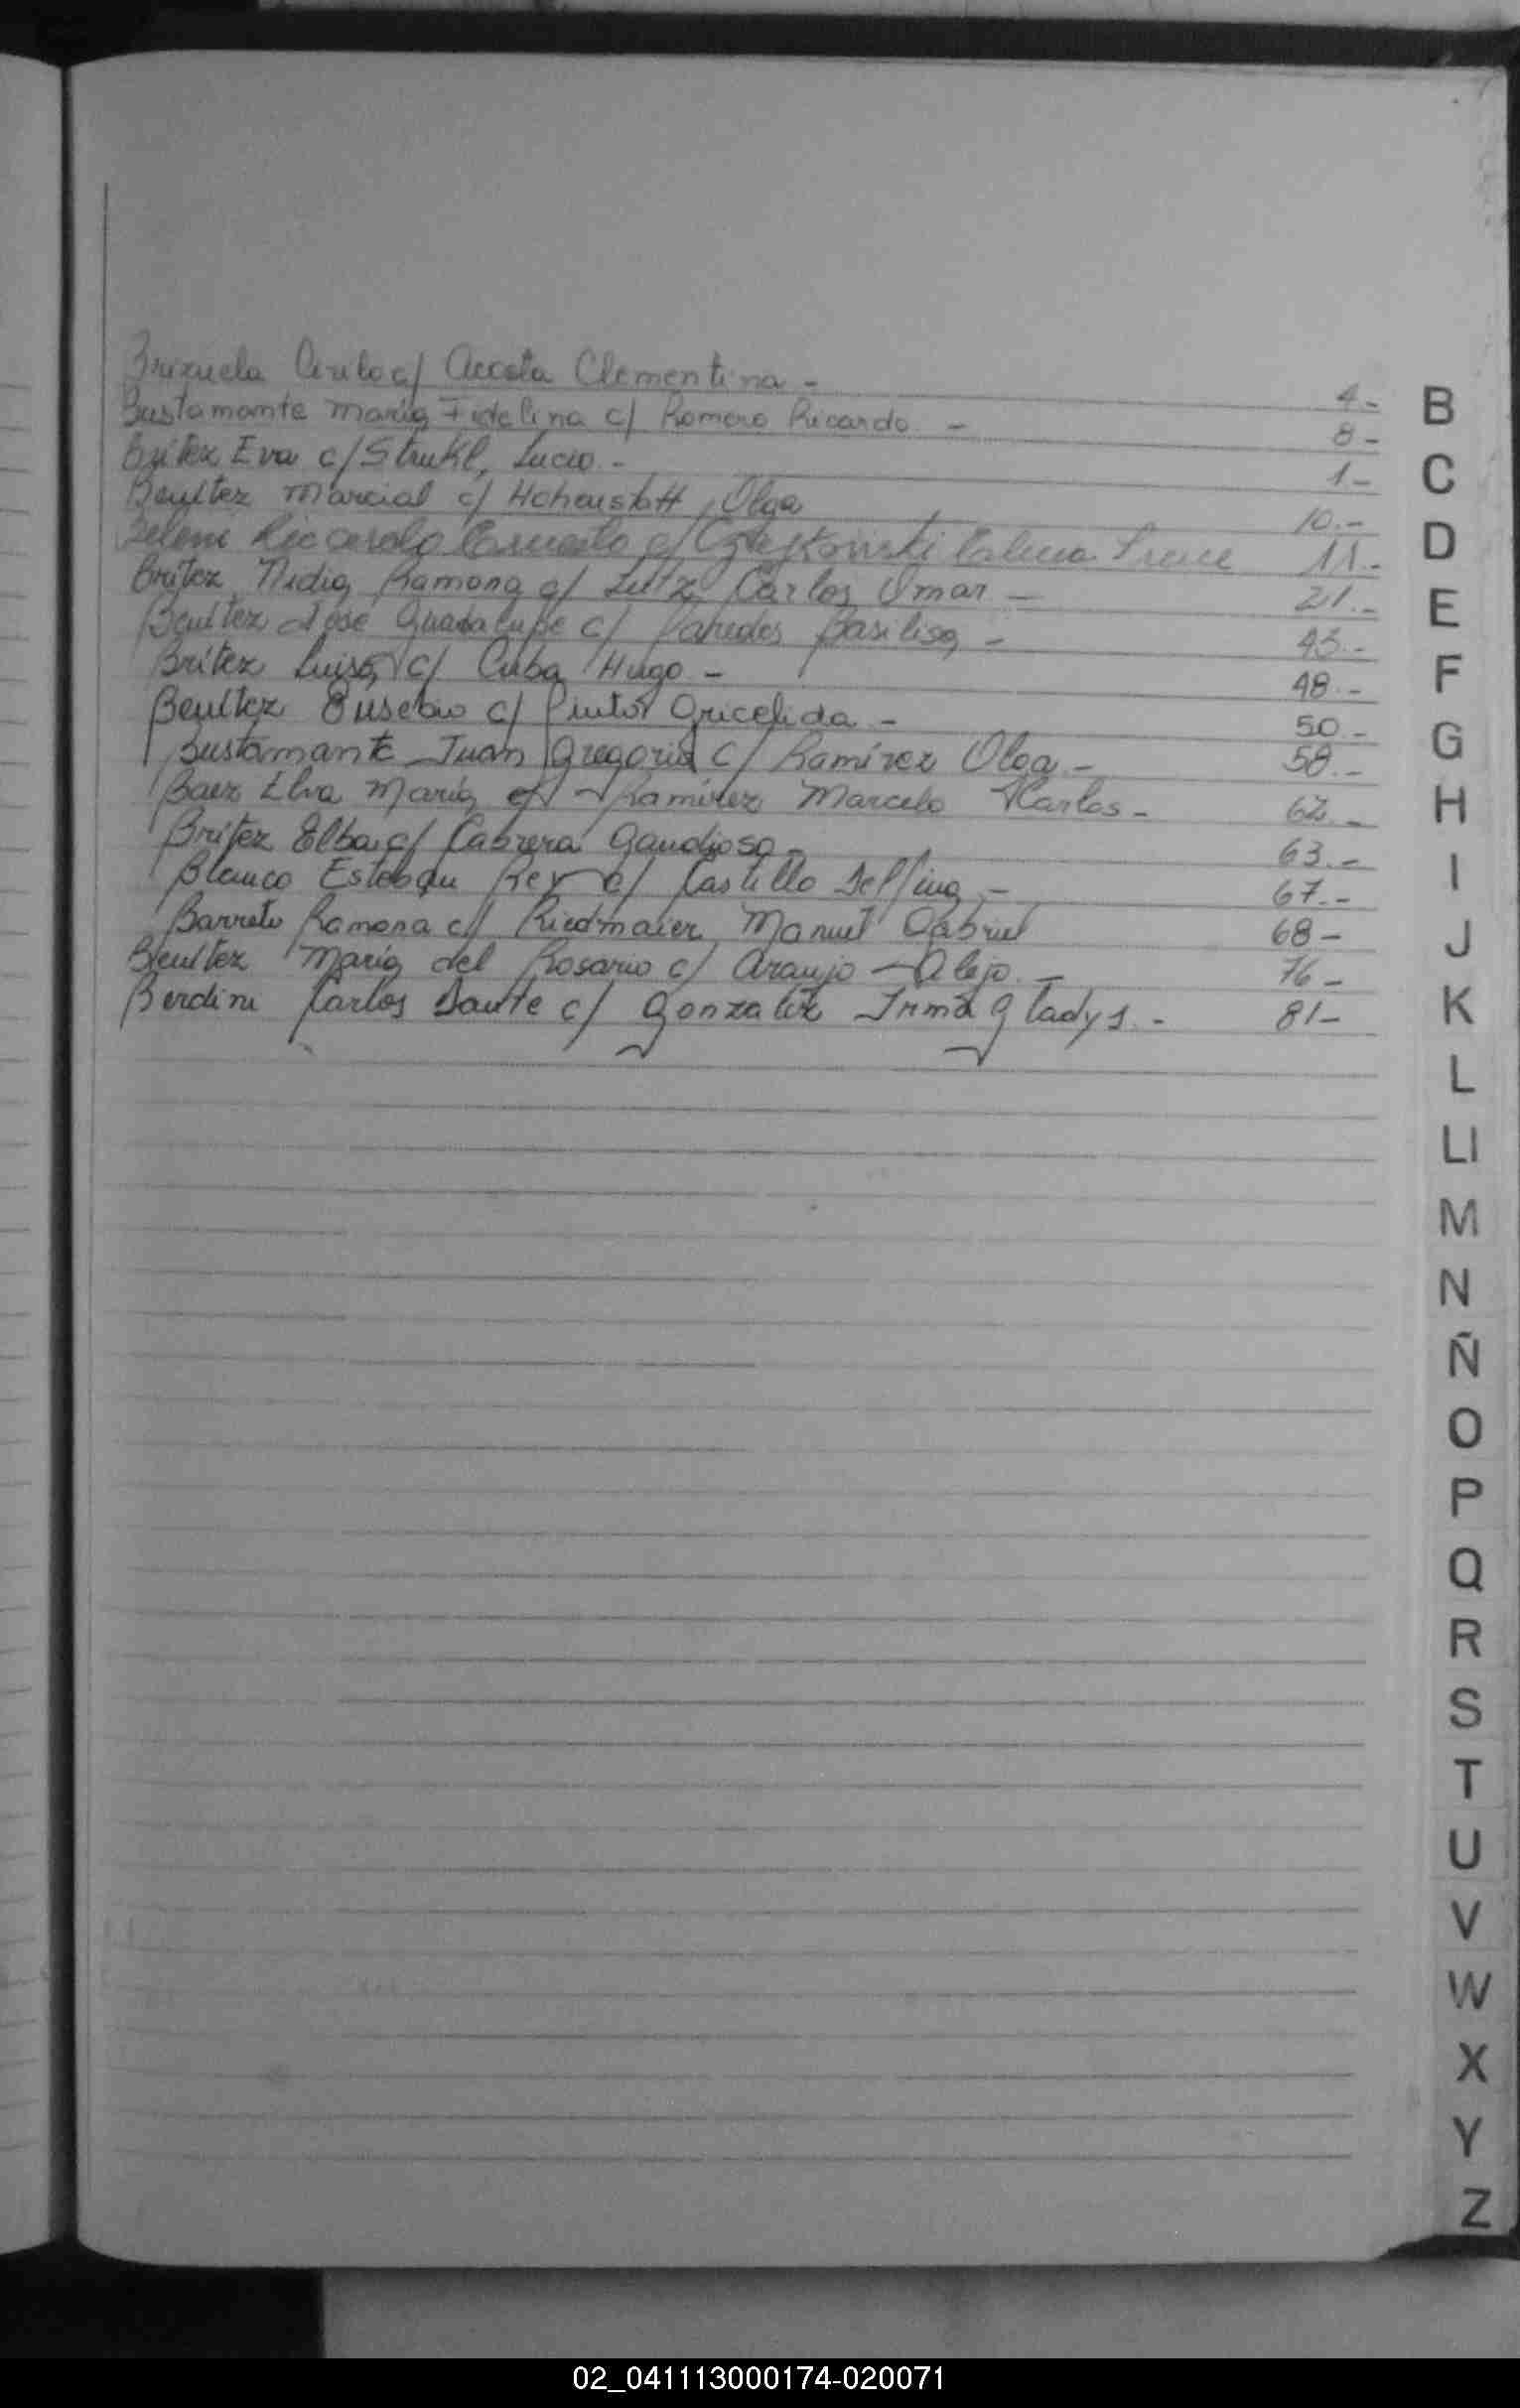 Brizuela Cirilo c/ Acosta Clementina - 4-
Bustamante María Fidelina c/ Romero Ricardo. - 8-
Britez Eva c/ Strukl, Lucio. - 1-
Benitez Marcial c/ Hohenstatt, Olga 10.-
Ricardo c/ Irene 11.-
Britez Nidia Ramona c/ Lutz Carlos Omar - 21.-
Benitez José Guadalupe c/ Paredes Basilisa - 45.-
Britez Luisa c/ Cuba Hugo - 48.-
Benitez Eusebio c/ Pintos Gricelida - 50.-
Bustamante Juan Gregorio c/ Ramírez Olga - 58.-
Baez Elva María c/ Ramírez Marcelo Carlos - 62.-
Britez Elba c/ Cabrera Gaudioso - 63.-
Blanco Esteban Rey c/ Castillo Delfina - 67.-
Barreto Ramona c/ Riedmaier Manuel Gabriel 68-
Benitez María del Rosario c/ Araujo Alejo. - 76-
Berdini Carlos Dante c/ Gonzalez Irma Gladys. - 81-
B
C
D
E
F
G
H
I
J
K
L
Ll
M
N
Ñ
O
P
Q
R
S
T
U
V
W
X
Y
Z
02_041113000174-020071